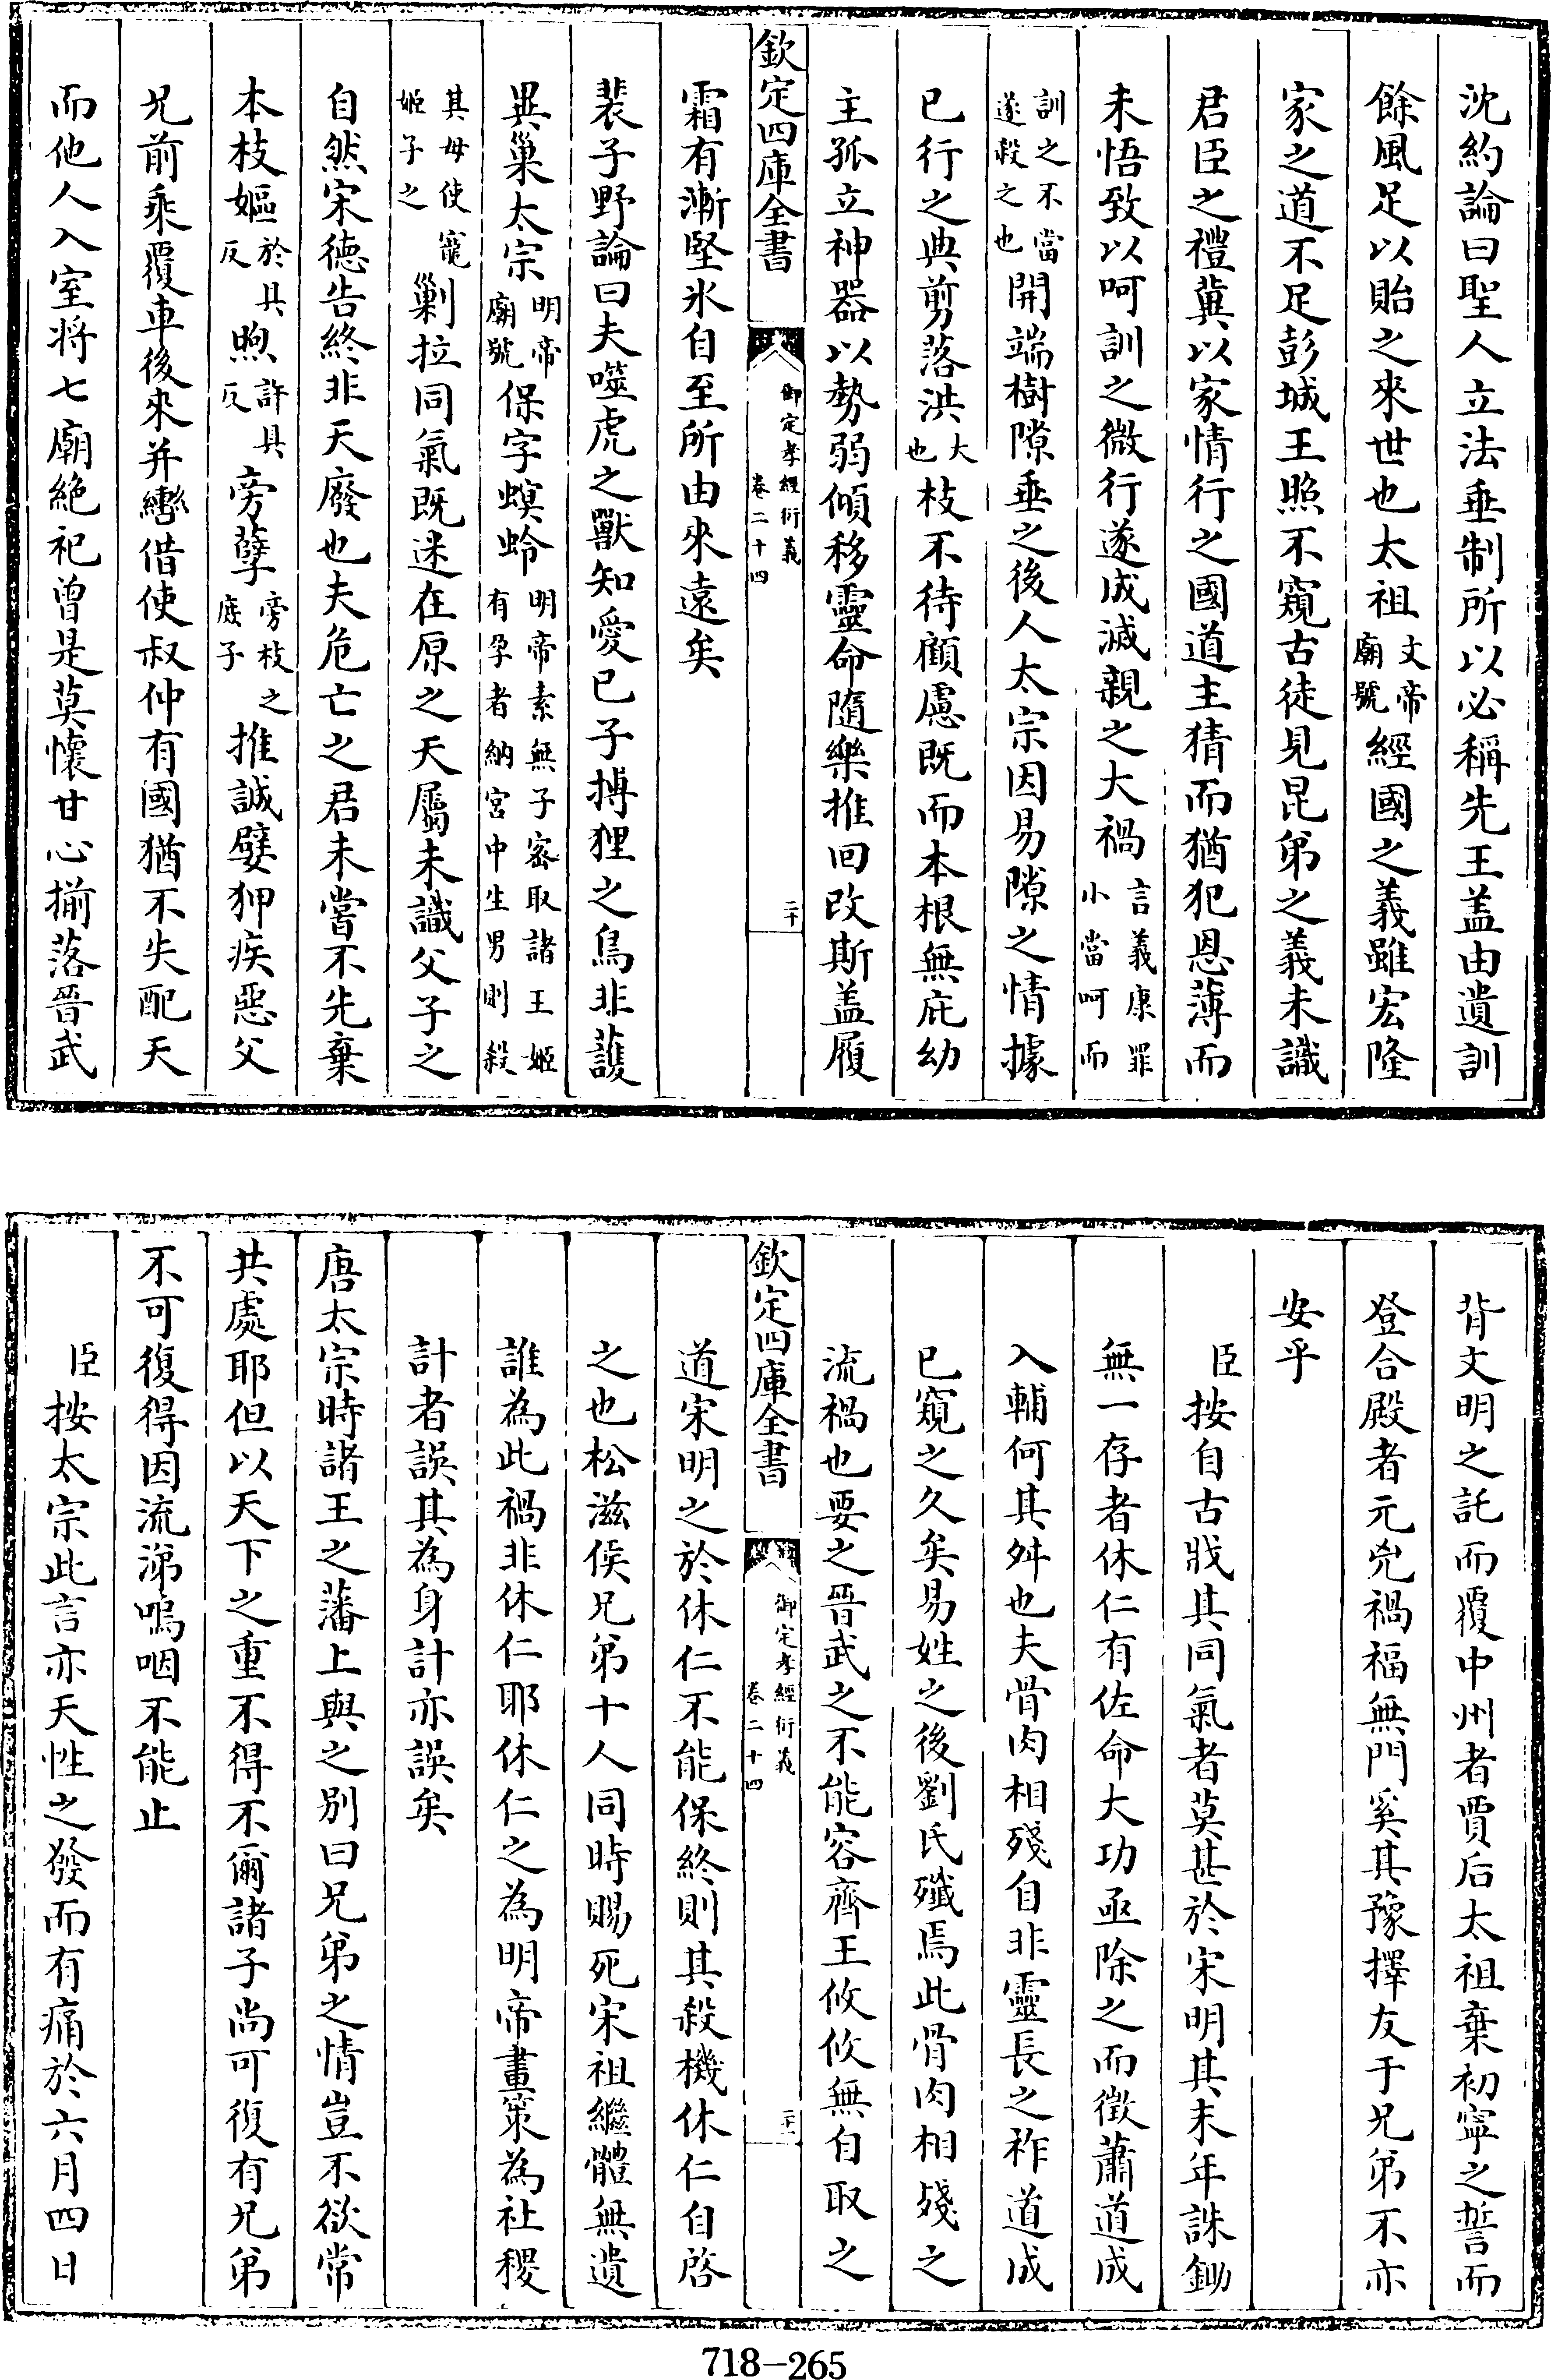 沈約論曰聖人立法垂制所以必稱先王盖由遺訓
餘風足以貽之來世也太祖文帝廟號經國之義雖宏隆
家之道不足彭城王照不窺古徒見昆弟之義未識
君臣之禮冀以家情行之國道主猜而猶犯恩薄而
未悟致以呵訓之微行遂成滅親之大禍言義康罪小當呵而
訓之不當遂殺之也開端樹隙垂之後人太宗因易隙之情據
已行之典剪落洪大也枝不待顧慮既而本根無庇幼
主孤立神器以勢弱傾移靈命隨樂推回改斯盖履
欽定四庫全書 御定孝經衍義 卷二十四 二十
霜有漸堅氷自至所由來遠矣
裴子野論曰夫噬虎之獸知愛已子搏狸之鳥非護
異巢太宗明帝廟號保字螟蛉明帝素無子密取諸王姬有孕者納宫中生男則殺
其母使寵姬子之勦拉同氣既迷在原之天屬未識父子之
自然宋德告終非天廢也夫危亡之君未嘗不先棄
本枝嫗於具反煦許具反旁孽旁枝之庶子推誠嬖狎疾惡父
兄前乘覆車後來并轡借使叔仲有國猶不失配天
而他人入室将七廟絶祀曾是莫懷甘心揃落晉武
背文明之託而覆中州者賈后太祖棄初寧之誓而
登合殿者元兇禍福無門奚其豫擇友于兄弟不亦
安乎
臣按自古戕其同氣者莫甚於宋明其末年誅鋤
無一存者休仁有佐命大功亟除之而徵蕭道成
入輔何其舛也夫骨肉相殘自非靈長之祚道成
已窺之久矣易姓之後劉氏殲焉此骨肉相殘之
流禍也要之晉武之不能容齊王攸攸無自取之
欽定四庫全書 御定孝經衍義 卷二十四 二十一
道宋明之於休仁不能保終則其殺機休仁自啓
之也松滋侯兄弟十人同時賜死宋祖繼體無遺
誰為此禍非休仁耶休仁之為明帝畫策為社稷
計者誤其為身計亦誤矣
唐太宗時諸王之藩上與之别曰兄弟之情豈不欲常
共處耶但以天下之重不得不爾諸子尚可復有兄弟
不可復得因流涕嗚咽不能止
臣按太宗此言亦天性之發而有痛於六月四日
718-265